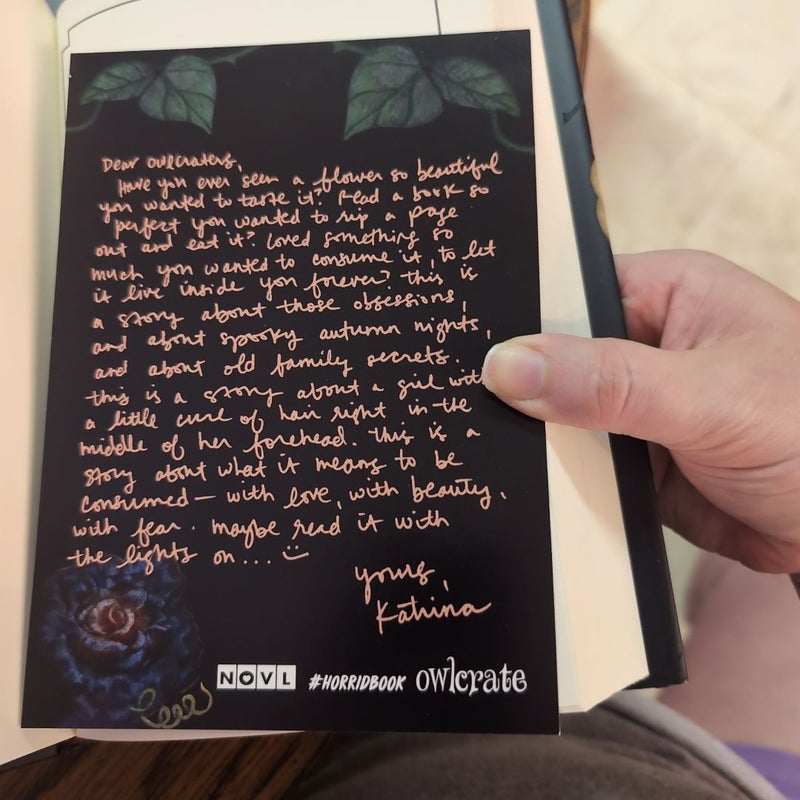 Dear owlcraters,
Have you ever seen a flower so beautiful
you wanted to taste it? Read a book so
perfect you wanted to rip a page
out and eat it? Loved something so
much you wanted to consume it, to let
it live inside you forever? This is
a story about those obsessions,
and about spooky autumn nights,
and about old family secrets.
this is a story about a girl with
a little curl of hair right in the
middle of her forehead. This is a
story about what it means to be
consumed— with love, with beauty,
with fear. Maybe read it with
the lights on... :)
yours,
Katrina
NOVL #HORRIDBOOK owlcrate